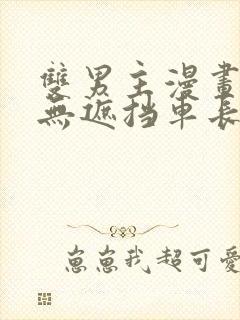 雙男主漫畫
無遮挡車長
崽崽我超可愛